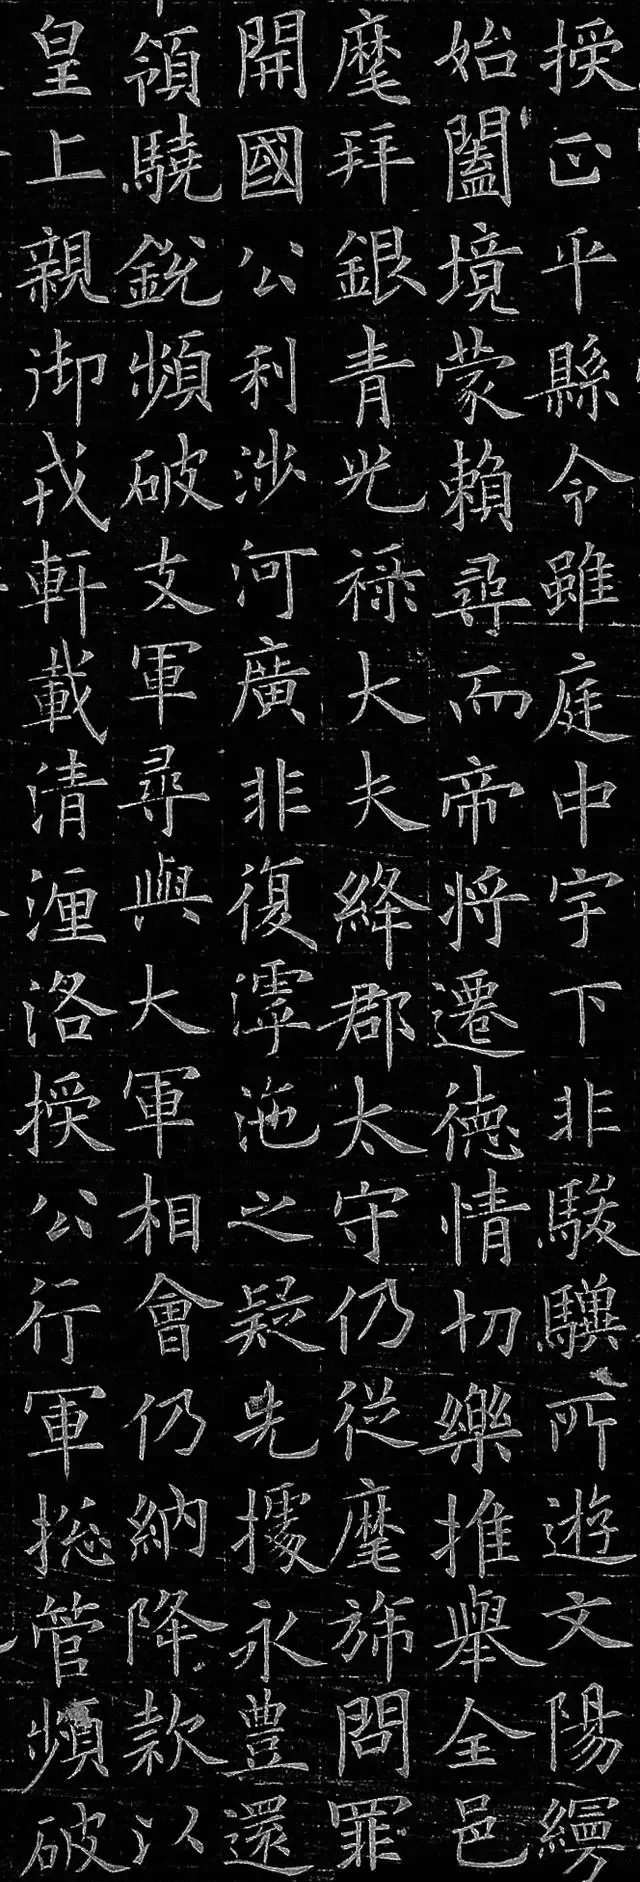 授正平縣令雖庭中宇下非駿驥所遊文陽縛
始闔境蒙賴尋而帝將遷德情切樂推舉全邑
麾拜銀青光祿大夫絳郡太守仍從麾旆問罪
開國公利涉河廣非復滹沱之疑先據永豊還
領驍銳頻破支軍尋與大軍相會仍納降款以
皇上親御戎軒載清瀍洛授公行軍揔管頻破